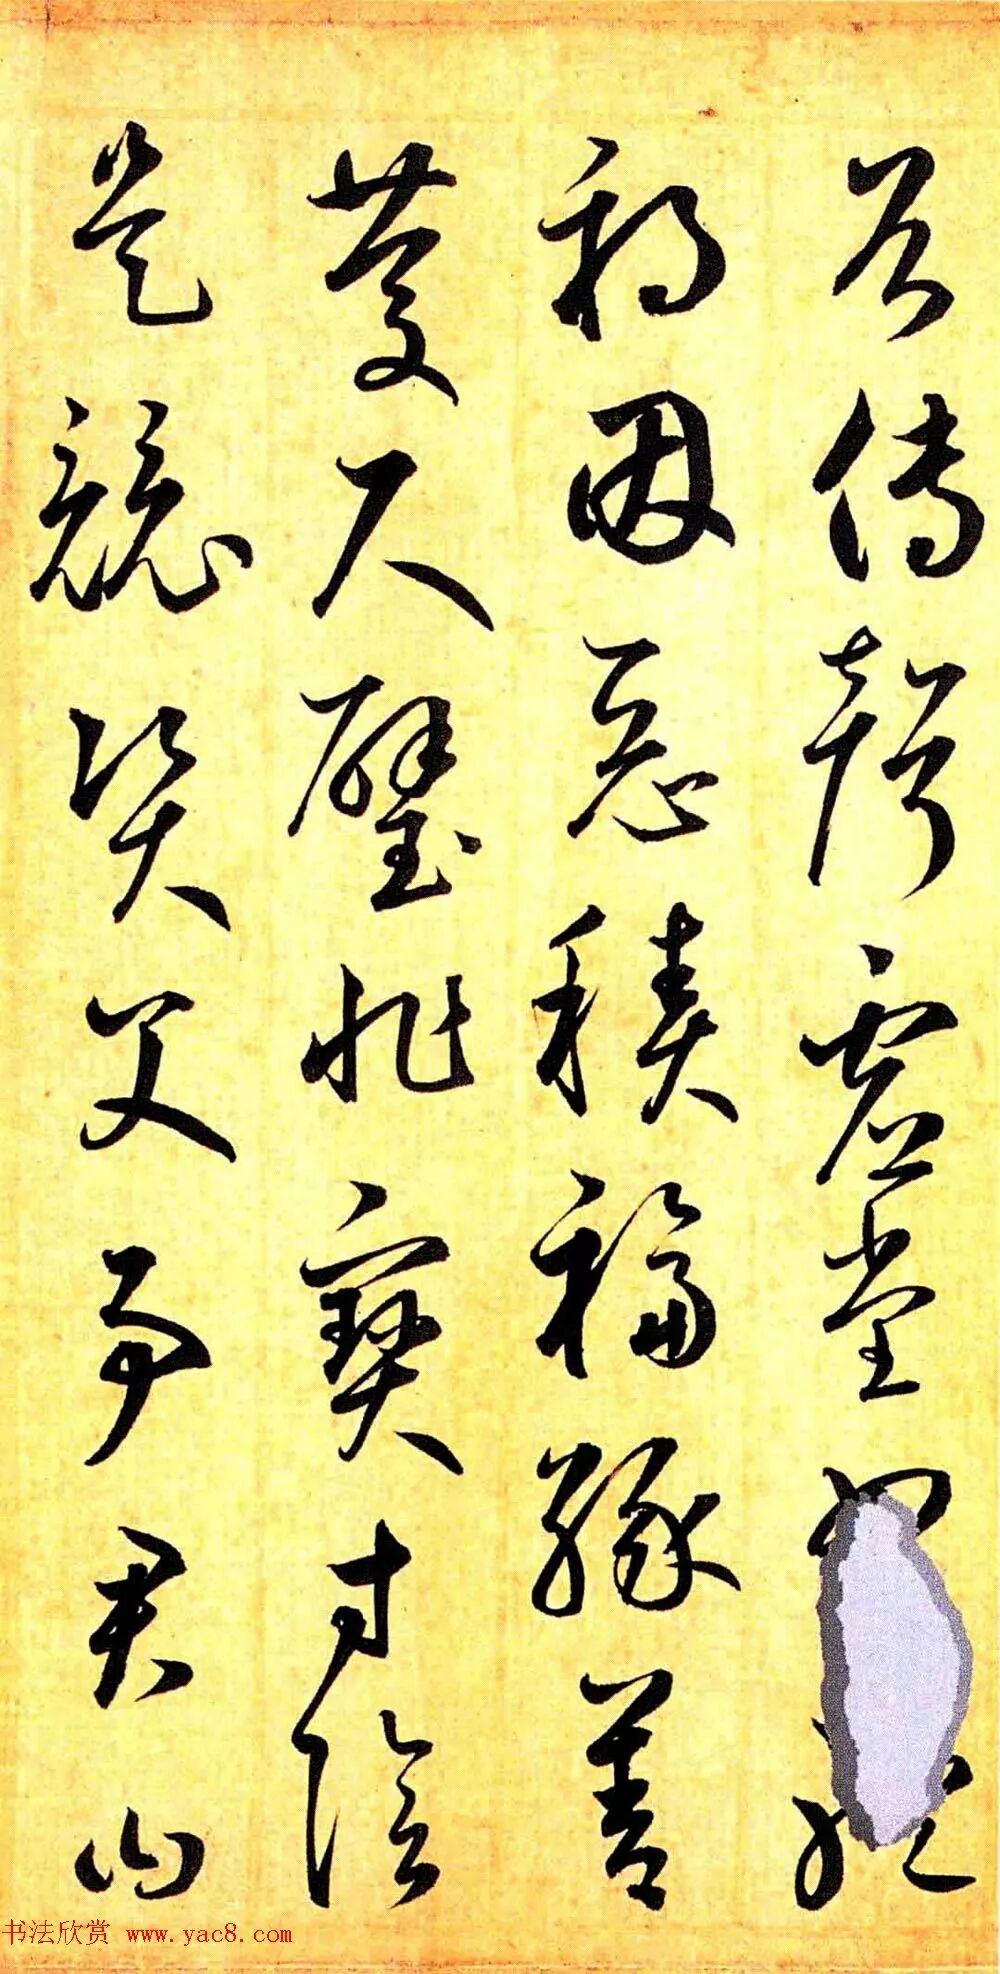 谷傳聲虛堂習聽
禍因惡積福緣善
慶尺璧非寶寸陰
是競資父事君曰
书法欣赏 www.yac8.com